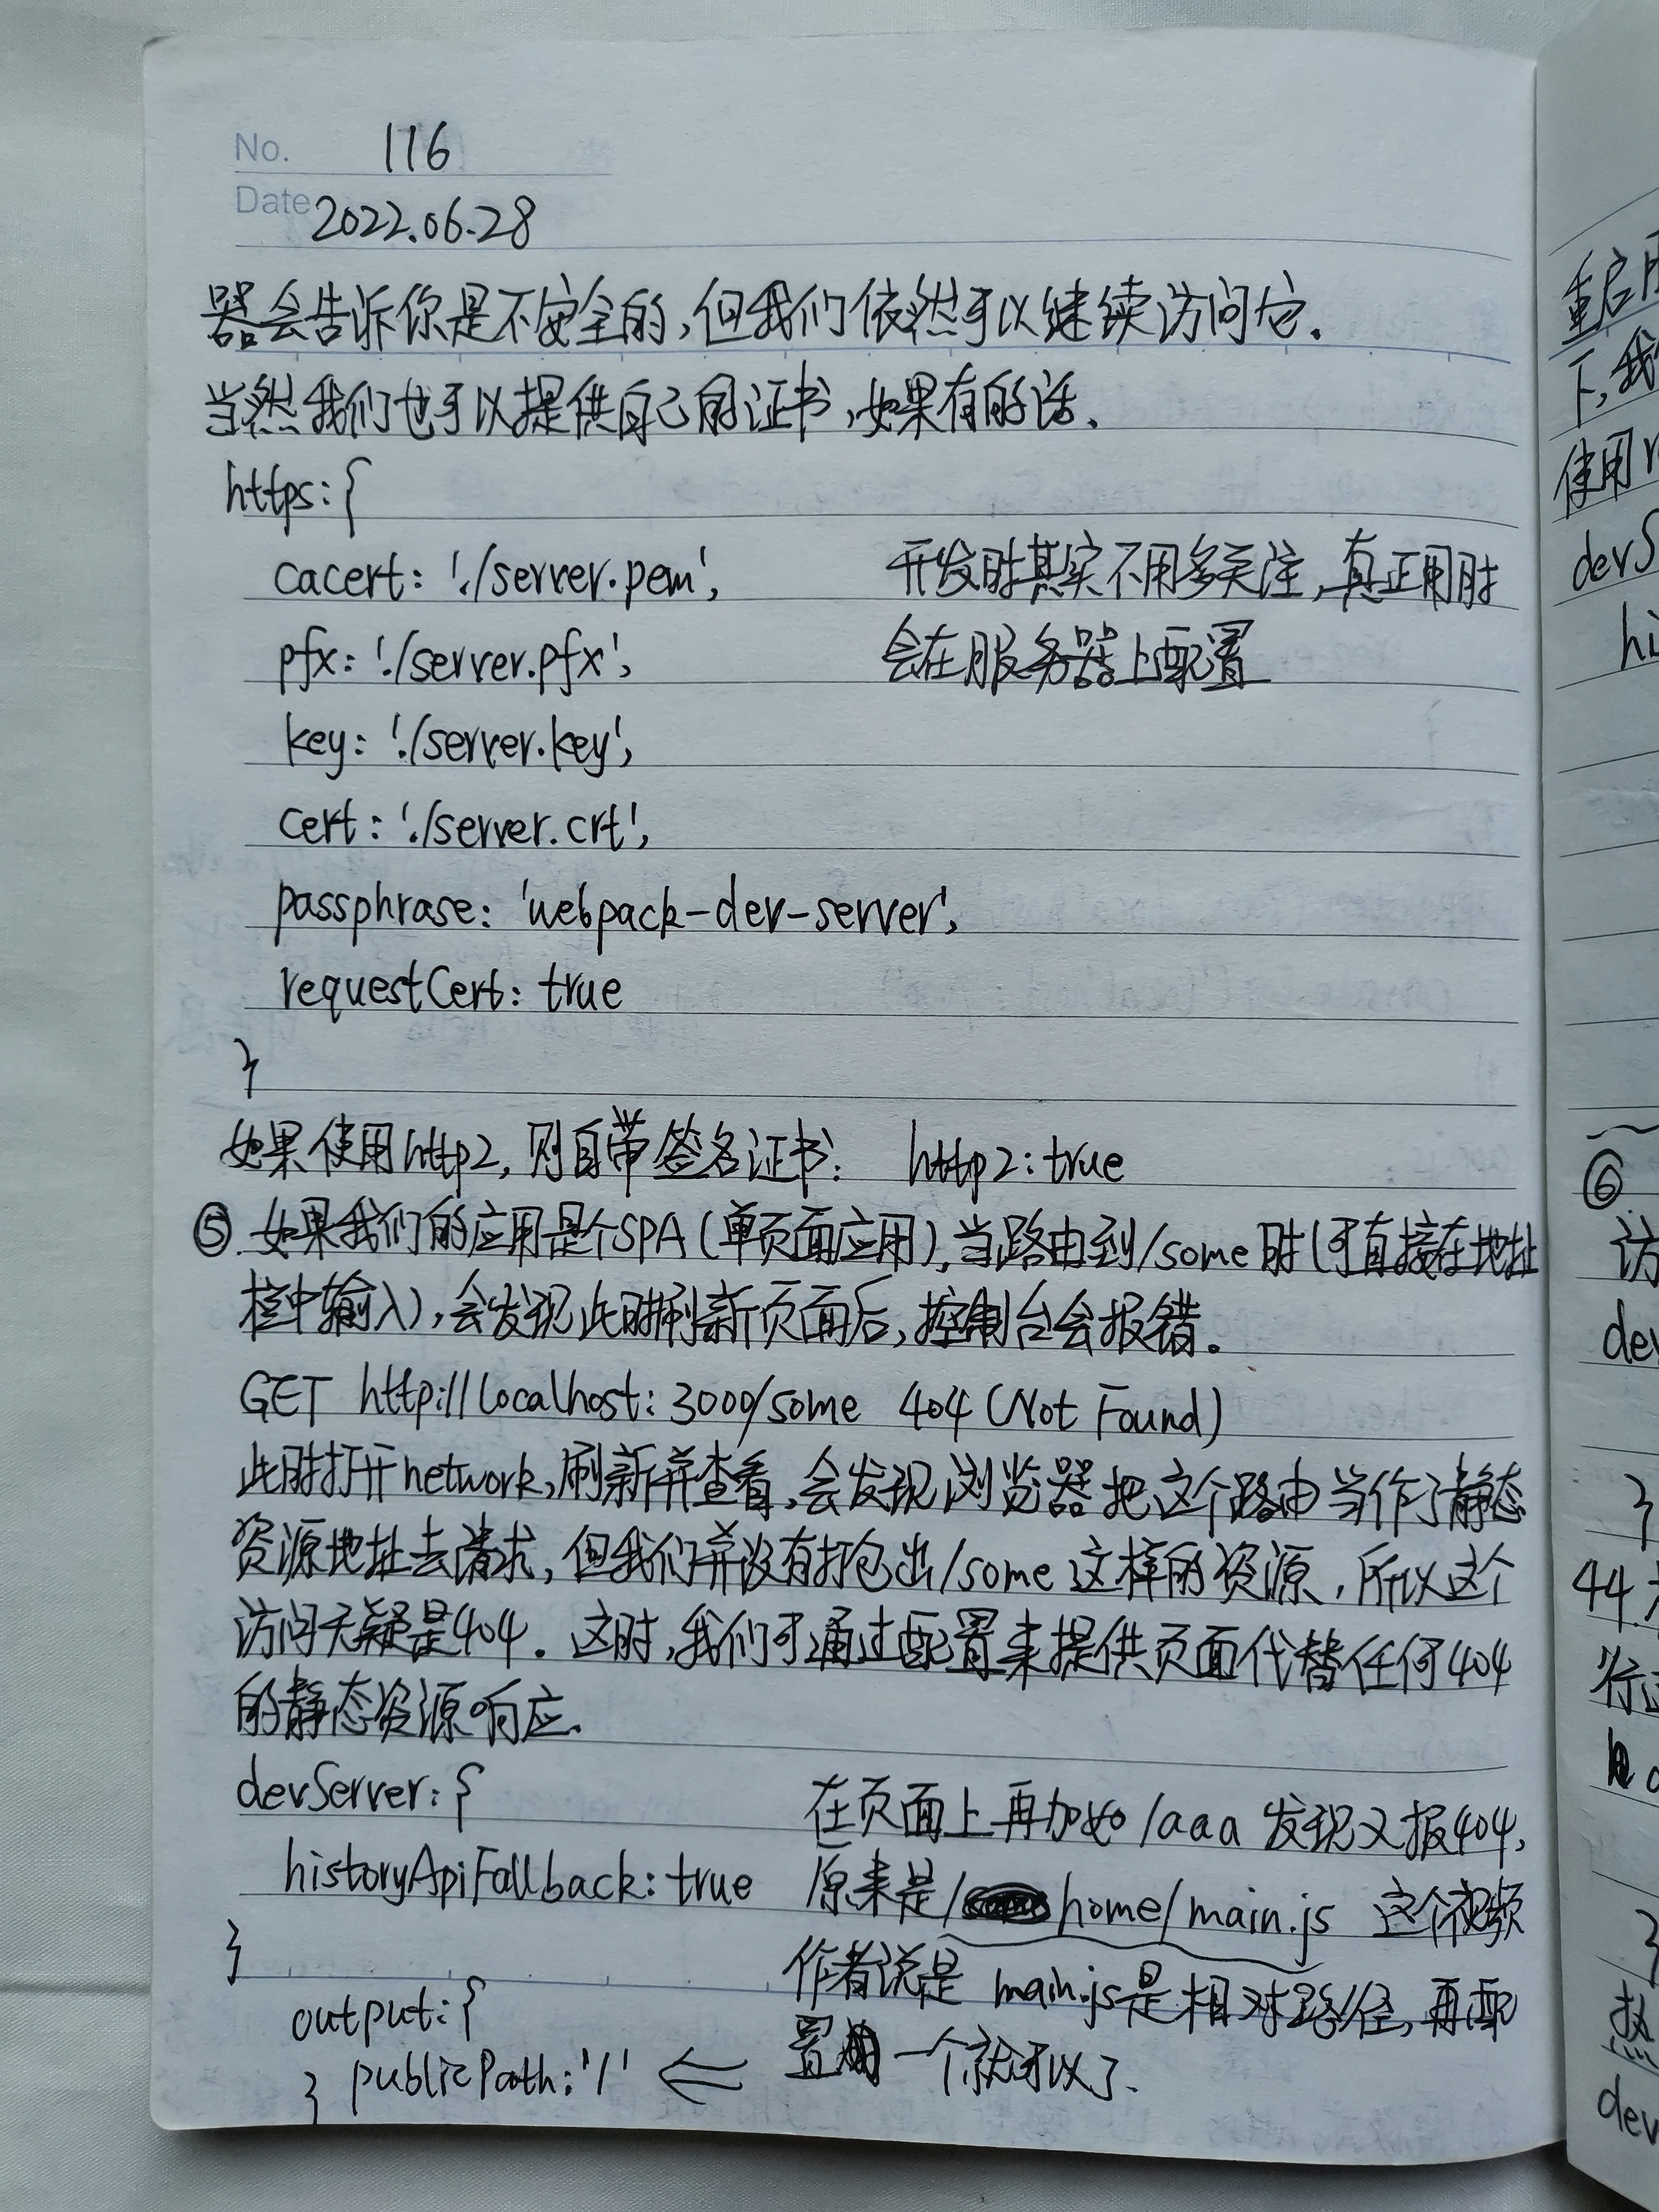 No. 116
Date 2022.06.28
器会告诉你是不安全的,但我们依然可以继续访问它.
当然我们也可以提供自己的证书,如果有的话.
https:{
cacert: './server.pem', 开发时其实不用多关注,真正用时
pfx: './server.pfx', 会在服务器上配置
key: './server.key',
cert: './server.crt',
passphrase: 'webpack-dev-server',
requestCert: true
}
如果使用http2,则自带签名证书: http2:true
⑤.如果我们的应用是个SPA(单页面应用),当路由到/some时(可直接在地址
栏中输入),会发现此时刷新页面后,控制台会报错。
GET http://localhost:3000/some 404 (Not Found)
此时打开network,刷新并查看,会发现浏览器把这个路由当作了静态
资源地址去请求,但我们并没有打包出/some这样的资源,所以这个
访问无疑是404. 这时,我们可通过配置来提供页面代替任何404
的静态资源响应.
devServer:{
historyApiFallback:true
}
在页面上再加如/aaa 发现又报404,
原来是/home/main.js 这个视频
作者说是 main.js是相对路径,再配
置一个就可以了.
output:{
} publicPath:'/' ⇐
重启
下,我
使用
devS
hi
⑥
访
dev
}
44.
行
}
热
dev